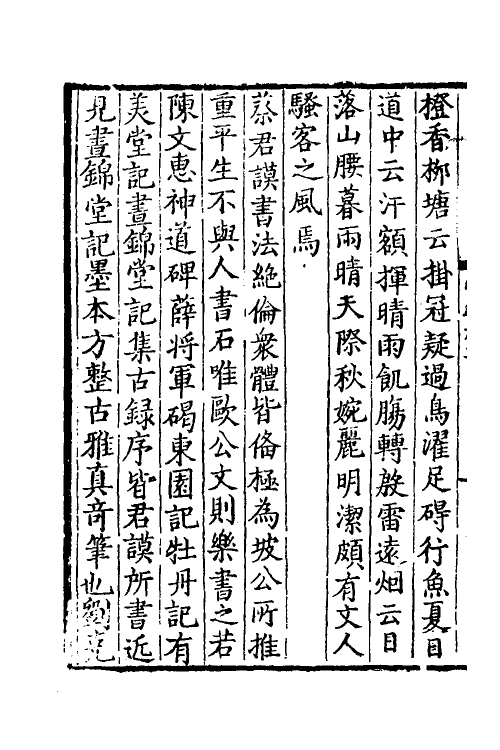 橙香栁塘云掛冠疑過鳥濯足碍行魚夏日
道中云汗額揮晴雨飢腸轉殷雷遠烟云日
落山腰暮雨晴天際秋婉麗明潔頗有文人
騷客之風焉
蔡君謨書法絶倫衆體皆俻極為坡公所推
重平生不與人書石唯歐公文則樂書之若
陳文惠神道碑薛将軍碣東園記牡丹記有
美堂記晝錦堂記集古録序皆君謨所書近
見晝錦堂記墨本方整古雅真竒筆也劉克